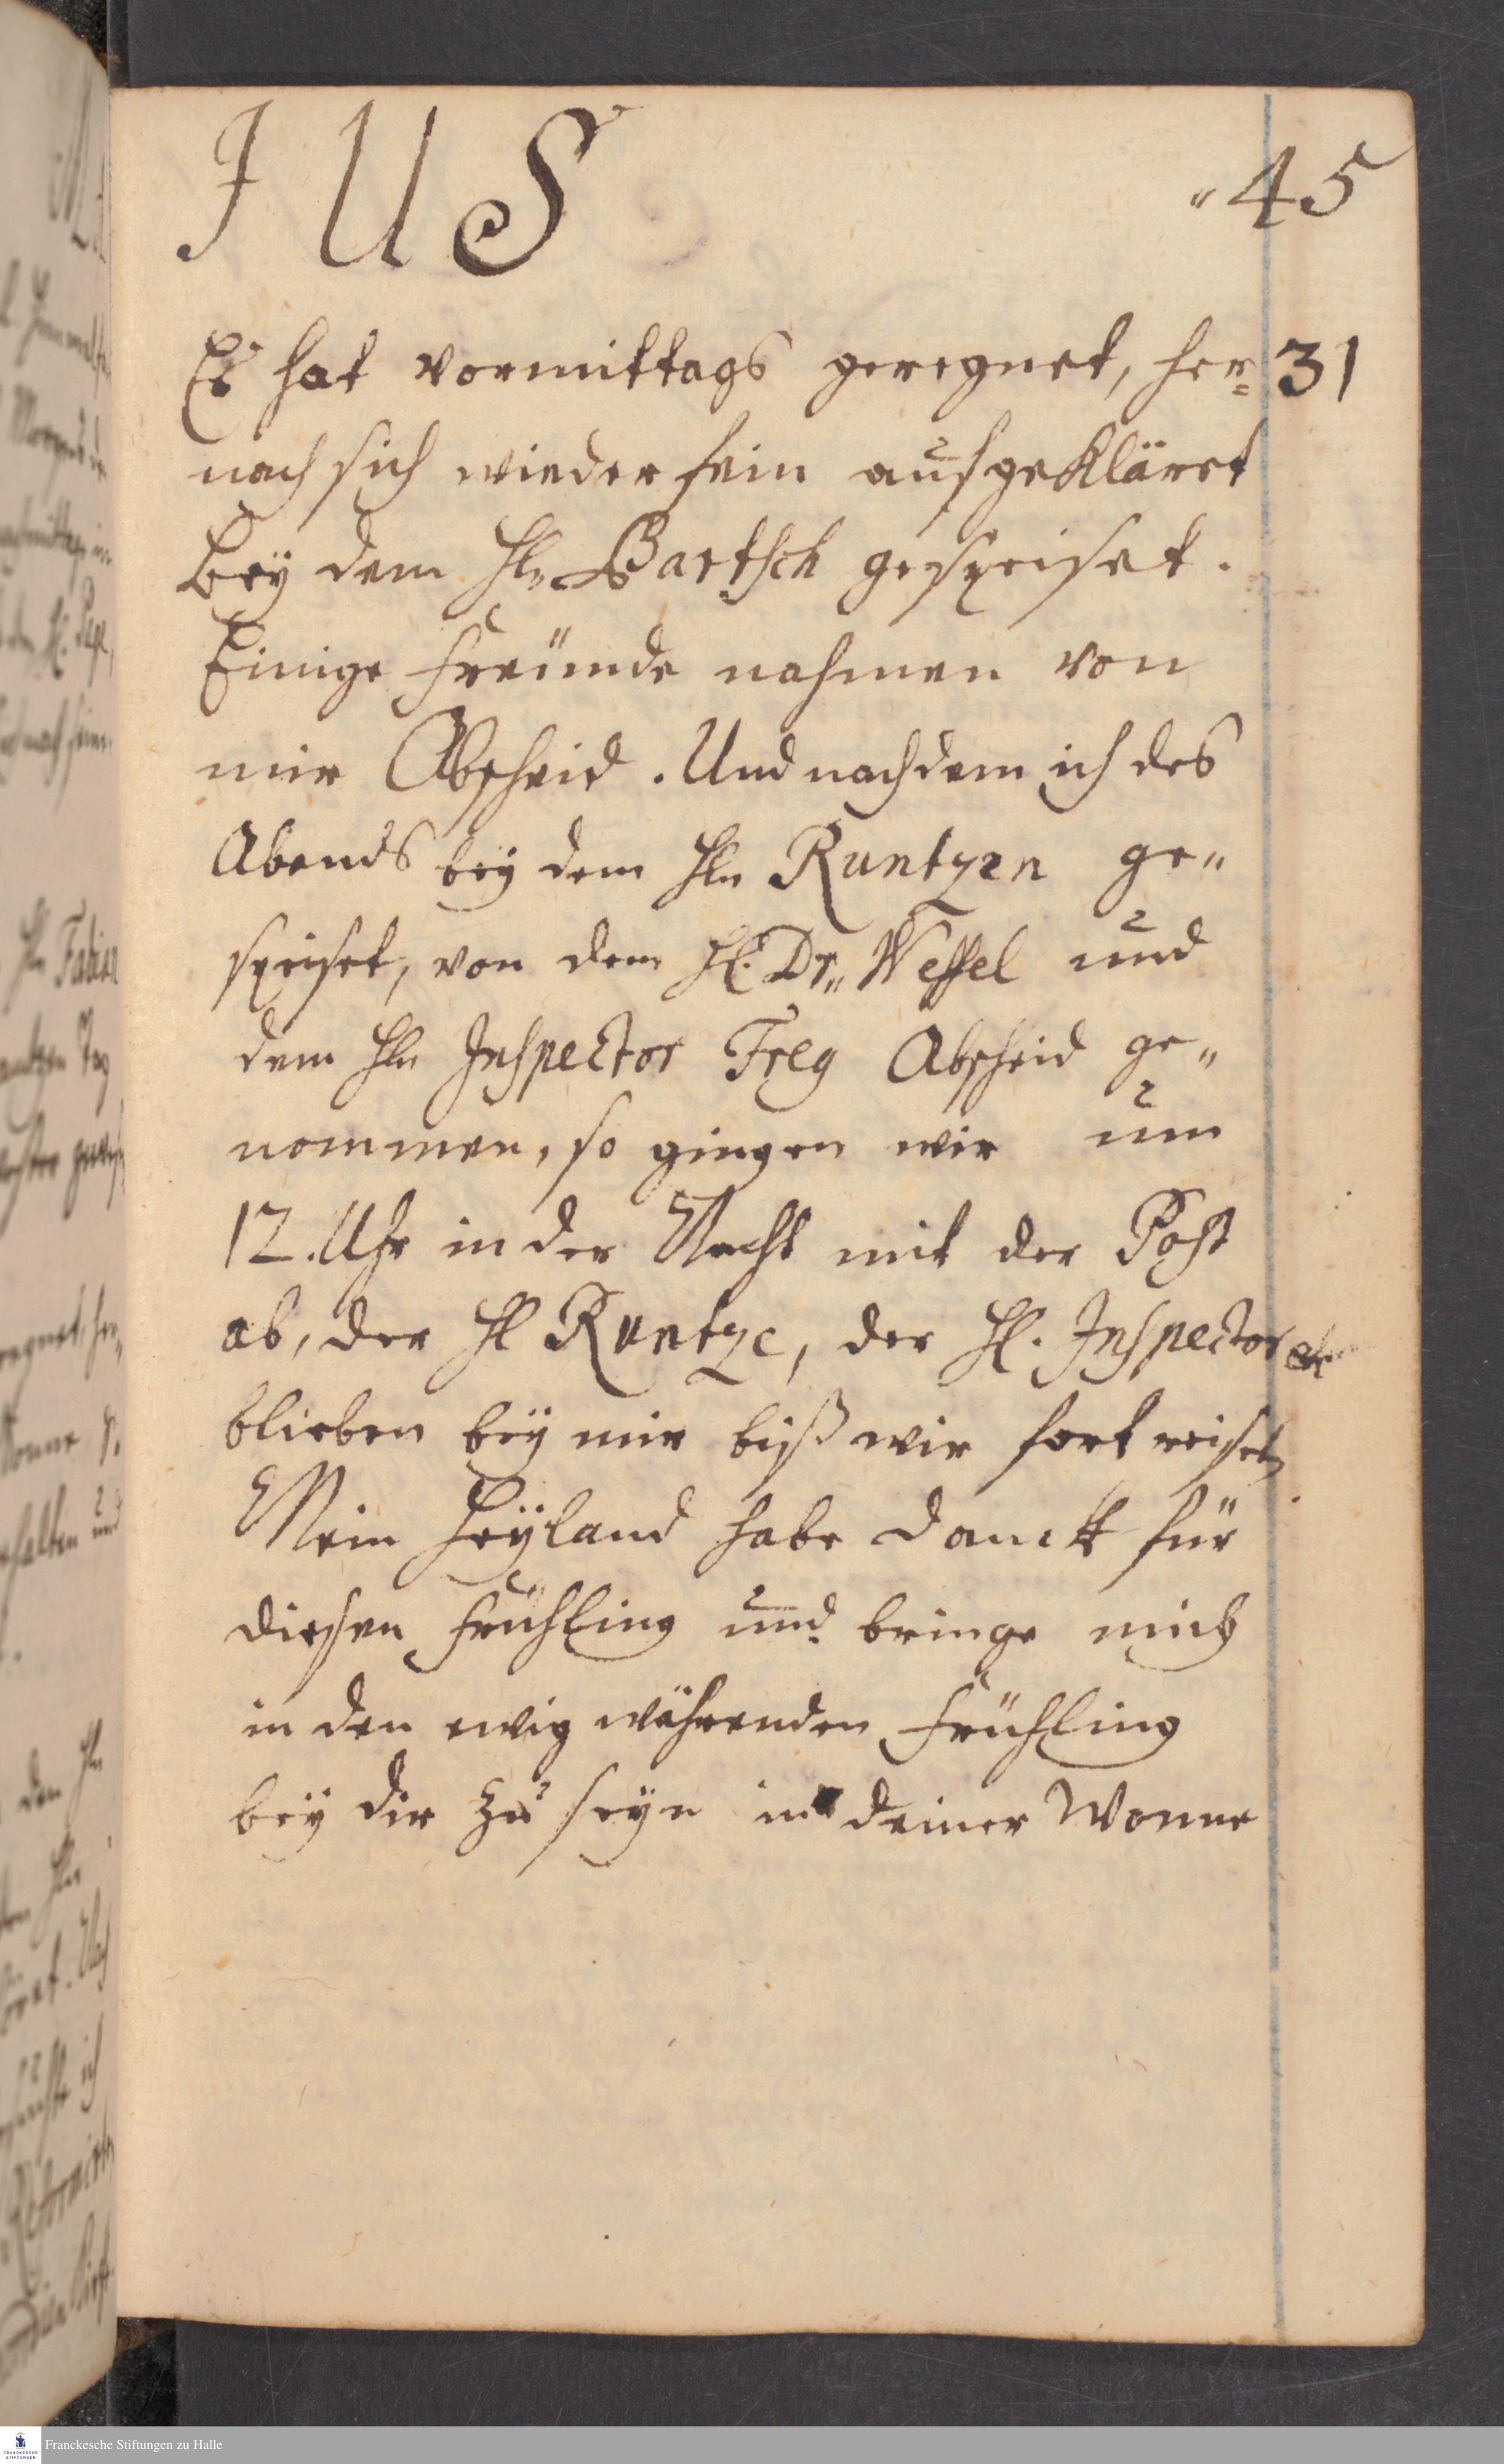 JUS
"45
Es hat vormittags geregnet, her= 31
nach sich wieder fein aufgekläret
Bey dem Hln Bartsch gespeiset.
Einige Freünde nahmen von
mir Abscheid. Und nachdem ich des
Abends bey dem Hln Runtzen ge"
speiset, von dem Hl. Dr" Wessel und
dem Hln Inspector Freg Abscheid ge"
nommen, so gingen wir um
12. Uhr in der Nacht mit der Post
ab, der Hl Runtze, der Hl. Inspector etc
blieben bey mir biß wir fort reiset
Mein Heyland habe Danck für
diesen Frühling und bringe mich
in den ewig währenden Frühling
bey dir zu seyn in deiner Wonne
Franckesche Stiftungen zu Halle